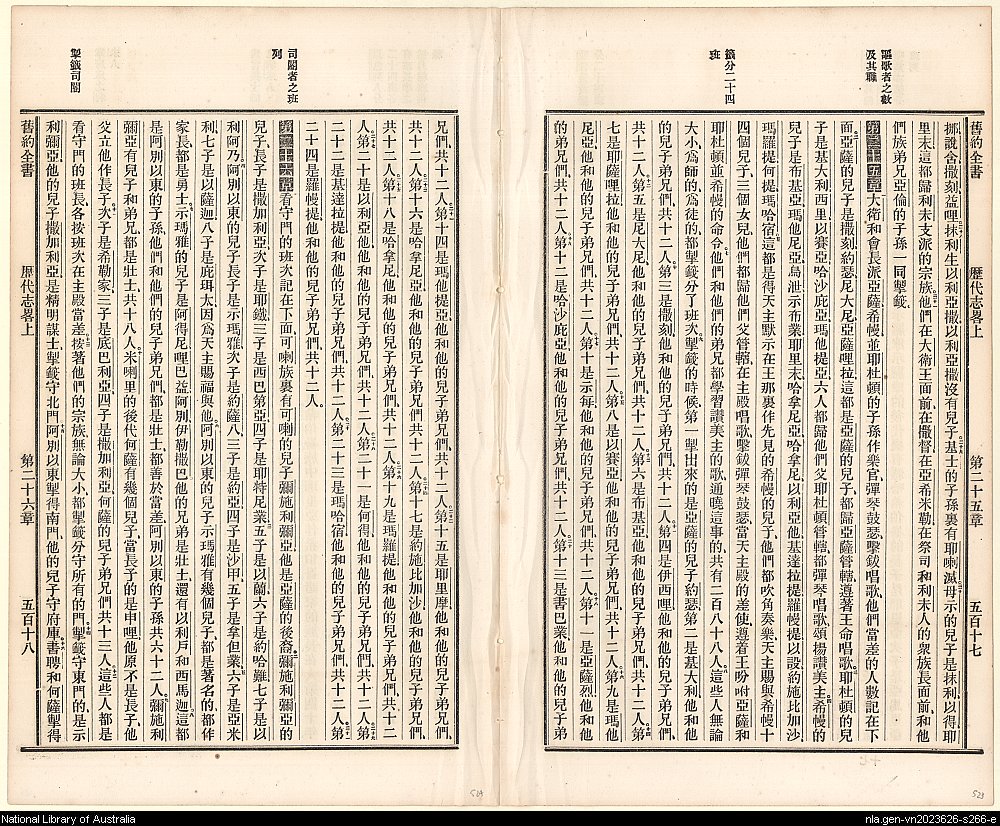 謳歌者之數
及其職
籤分二十四
班
舊約全書 歷代志畧上 第二十五章 五百十七
挪說舍撒刻益哩抹利生以利亞撒以利亞撒沒有兒子基士的子孫裏有耶喇滅母示的兒子是抹利以得耶
里末這都歸利未支派的宗族他們在大衛王面前在撒督在亞希米勒在祭司和利未人的衆族長面前和他
們族弟兄亞倫的子孫一同掣籤
第二十五章大衛和會長派亞薩希幔並耶杜頓的子孫作樂官彈琴鼓瑟擊鈸唱歌他們當差的人數記在下
面亞薩的兒子是撒刻約瑟尼大尼亞薩哩拉這都是亞薩的兒子都歸亞薩管轄遵著王命唱歌耶杜頓的兒
子是基大利西里以賽亞哈沙庇亞瑪他提亞六人都歸他們父耶杜頓管轄都彈琴唱歌頌揚讚美主希幔的
兒子是布基亞瑪他尼亞烏泄示布業耶里末哈拿尼亞哈拿尼以利亞他基達拉提羅幔提以設約施比加沙
瑪羅提何提瑪哈宿這都是得天主默示在王那裏作先見的希幔的兒子他們都吹角奏樂天主賜與希幔十
四個兒子三個女兒他們都歸他們父管轄在主殿唱歌擊鈸彈琴鼓瑟當天主殿的差使遵着王吩咐亞薩和
耶杜頓並希幔的命令他們和他們的弟兄都學習讚美主的歌通曉這事的共有二百八十八人這些人無論
大小爲師的爲徒的都掣籤分了班次掣籤的時候第一掣出來的是亞薩的兒子約瑟第二是基大利他和他
的兒子弟兄們共十二人第三是撒刻他和他的兒子弟兄們共十二人第四是伊西哩他和他的兒子弟兄們
共十二人第五是尼大尼他和他的兒子弟兄們共十二人第六是布基亞他和他的兒子弟兄們共十二人第
七是耶薩哩拉他和他的兒子弟兄們共十二人第八是以賽亞他和他的兒子弟兄們共十二人第九是瑪他
尼亞他和他的兒子弟兄們共十二人第十是示每他和他的兒子弟兄們共十二人第十一是亞薩烈他和他
的兒子弟兄們共十二人第十二是哈沙庇亞他和他的兒子弟兄們共十二人第十三是書巴業他和他的兒子弟
司閽者之班
列
掣籤司閽
兄們共十二人第十四是瑪他提亞他和他的兒子弟兄們共十二人第十五是耶里摩他和他的兒子弟兄們
共十二人第十六是哈拿尼亞他和他的兒子弟兄們共十二人第十七是約施比加沙他和他的兒子弟兄們
共十二人第十八是哈拿尼他和他的兒子弟兄們共十二人第十九是瑪羅提他和他的兒子弟兄們共十二
人第二十是以利亞他他和他的兒子弟兄們共十二人第二十一是何得他和他的兒子弟兄們共十二人第
二十二是基達拉提他和他的兒子弟兄們共十二人第二十三是瑪哈宿他和他的兒子弟兄們共十二人第
二十四是羅幔提他和他的兒子弟兄們共十二人
第二十六章看守門的班次記在下面可喇族裏有可喇的兒子彌施利彌亞他是亞薩的後裔彌施利彌亞的
兒子長子是撒加利亞次子是耶鐵三子是西巴第亞四子是耶特尼業五子是以蘭六子是約哈難七子是以
利阿乃阿別以東的兒子長子是示瑪雅次子是約薩八三子是約亞四子是沙甲五子是拿但業六子是亞米
利七子是以薩迦八子是庇珥太因爲天主賜福與他阿別以東的兒子示瑪雅有幾個兒子都是著名的都作
家長都是勇士示瑪雅的兒子是阿得尼哩巴益阿別伊勒撒巴他的兄弟是壯士還有以利戶和西馬迦這都
是阿別以東的子孫他們和他們的兒子弟兄們都是壯士都善於當差阿別以東的子孫共六十二人彌施利
彌亞有兒子和弟兄都是壯士共十八人米喇里的後代何薩有幾個兒子當長子的是申哩他原不是長子他
父立他作長子次子是希勒家三子是底巴利亞四子是撒加利亞何薩的兒子弟兄們共十三人這些人都是
看守門的班長各按班次在主殿當差按著他們的宗族無論大小都掣籤分守所有的門掣籤守東門的是示
利彌亞他的兒子撒加利亞是精明謀士掣籤守北門阿別以東掣得南門他的兒子守府庫書聘和何薩掣得
舊約全書 歷代志畧上 第二十六章 五百十八
National Library of Australia
nla.gen-vn2023626-s266-e